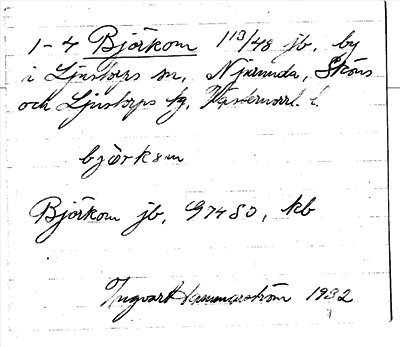 1-4 Björkom 113/48 jb. by
i Ljustorps sn, Njurunda, Sköns
och Ljustorps tg, Västernorrl. l.
björkѳm
Björkom jb, G7480, kb
Ingvar Hammarström 1932